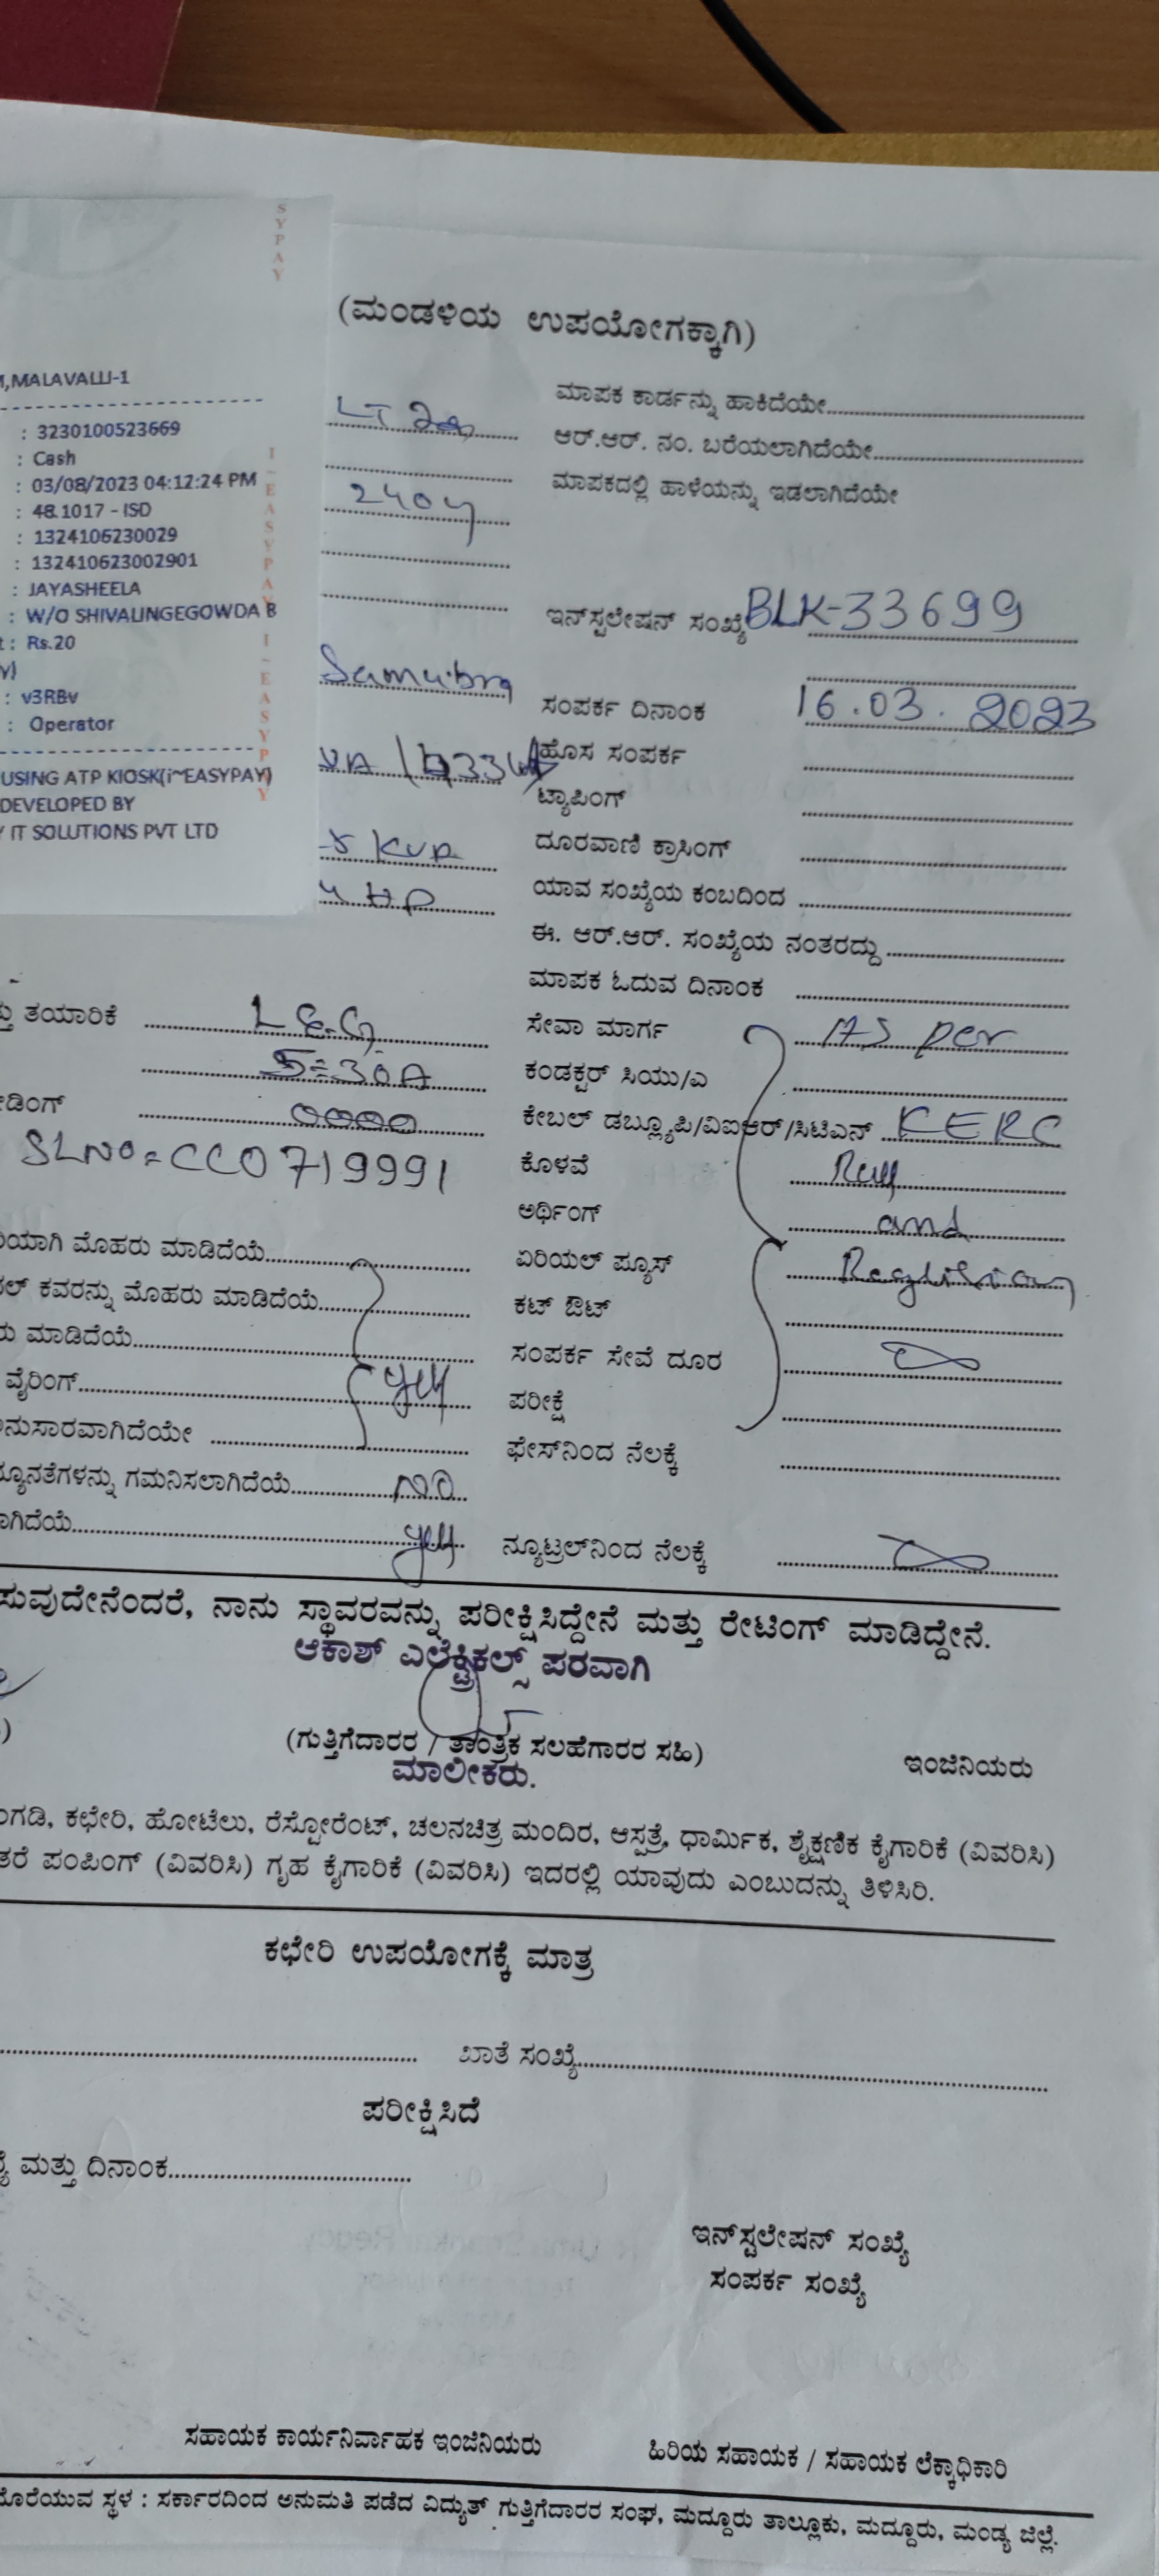 SYPAY
(ಮಂಡಳಿಯ ಉಪಯೋಗಕ್ಕಾಗಿ)
MALAVALLI-1
: 3230100523669
: Cash
: 03/08/2023 04:12:24 PM
: 48.1017 - ISD
: 1324106230029
: 132410623002901
: JAYASHEELA
: W/O SHIVALINGEGOWDA B
: Rs.20
: v3RBv
: Operator
USING ATP KIOSK(i~EASYPAY)
DEVELOPED BY
IT SOLUTIONS PVT LTD
I~EASYPAY I~EASYPY
LT
240
ಮಾಪಕ ಕಾರ್ಡನ್ನು ಹಾಕಿದೆಯೇ
ಆರ್.ಆರ್. ನಂ. ಬರೆಯಲಾಗಿದೆಯೇ
ಮಾಪಕದಲ್ಲಿ ಹಾಳೆಯನ್ನು ಇಡಲಾಗಿದೆಯೇ
ಇನ್‌ಸ್ಟಲೇಷನ್ ಸಂಖ್ಯೆ BLK-33699
ಸಂಪರ್ಕ ದಿನಾಂಕ 16.03.2023
ಹೊಸ ಸಂಪರ್ಕ
ಟ್ಯಾಪಿಂಗ್
KVA ದೂರವಾಣಿ ಕ್ರಾಸಿಂಗ್
HP ಯಾವ ಸಂಖ್ಯೆಯ ಕಂಬದಿಂದ
ಈ. ಆರ್.ಆರ್. ಸಂಖ್ಯೆಯ ನಂತರದ್ದು
ಮಾಪಕ ಓದುವ ದಿನಾಂಕ
ತಯಾರಿಕೆ L&G ಸೇವಾ ಮಾರ್ಗ As per
5-30A ಕಂಡಕ್ಟರ್ ಸಿಯು/ಎ
0000 ಕೇಬಲ್ ಡಬ್ಲ್ಯೂಪಿ/ವಿಐಆರ್/ಸಿಟಿಎನ್ KERC
SLNO=CC0719991 ಕೊಳವೆ
ಅರ್ಥಿಂಗ್ and
ಮೊಹರು ಮಾಡಿದೆಯೆ ಏರಿಯಲ್ ಪ್ಯೂಸ್
ಕವರನ್ನು ಮೊಹರು ಮಾಡಿದೆಯೆ ಕಟ್ ಔಟ್
ಮಾಡಿದೆಯೆ ಸಂಪರ್ಕ ಸೇವೆ ದೂರ
ವೈರಿಂಗ್ yes ಪರೀಕ್ಷೆ
ಫೇಸ್‌ನಿಂದ ನೆಲಕ್ಕೆ
ಗಮನಿಸಲಾಗಿದೆಯೆ NO
yes ನ್ಯೂಟ್ರಲ್‌ನಿಂದ ನೆಲಕ್ಕೆ
ನಾನು ಸ್ಥಾವರವನ್ನು ಪರೀಕ್ಷಿಸಿದ್ದೇನೆ ಮತ್ತು ರೇಟಿಂಗ್ ಮಾಡಿದ್ದೇನೆ.
ಆಕಾಶ್ ಎಲೆಕ್ಟ್ರಿಕಲ್ಸ್ ಪರವಾಗಿ
(ಗುತ್ತಿಗೆದಾರರ / ತಾಂತ್ರಿಕ ಸಲಹೆಗಾರರ ಸಹಿ) ಇಂಜಿನಿಯರು
ಮಾಲೀಕರು.
ಕಛೇರಿ, ಹೋಟೆಲು, ರೆಸ್ಟೋರೆಂಟ್, ಚಲನಚಿತ್ರ ಮಂದಿರ, ಆಸ್ಪತ್ರೆ, ಧಾರ್ಮಿಕ, ಶೈಕ್ಷಣಿಕ ಕೈಗಾರಿಕೆ (ವಿವರಿಸಿ)
ಪಂಪಿಂಗ್ (ವಿವರಿಸಿ) ಗೃಹ ಕೈಗಾರಿಕೆ (ವಿವರಿಸಿ) ಇದರಲ್ಲಿ ಯಾವುದು ಎಂಬುದನ್ನು ತಿಳಿಸಿರಿ.
ಕಛೇರಿ ಉಪಯೋಗಕ್ಕೆ ಮಾತ್ರ
ಖಾತೆ ಸಂಖ್ಯೆ
ಪರೀಕ್ಷಿಸಿದೆ
ಮತ್ತು ದಿನಾಂಕ
ಇನ್‌ಸ್ಟಲೇಷನ್ ಸಂಖ್ಯೆ
ಸಂಪರ್ಕ ಸಂಖ್ಯೆ
ಸಹಾಯಕ ಕಾರ್ಯನಿರ್ವಾಹಕ ಇಂಜಿನಿಯರು ಹಿರಿಯ ಸಹಾಯಕ / ಸಹಾಯಕ ಲೆಕ್ಕಾಧಿಕಾರಿ
ಸ್ಥಳ : ಸರ್ಕಾರದಿಂದ ಅನುಮತಿ ಪಡೆದ ವಿದ್ಯುತ್ ಗುತ್ತಿಗೆದಾರರ ಸಂಘ, ಮದ್ದೂರು ತಾಲ್ಲೂಕು, ಮದ್ದೂರು, ಮಂಡ್ಯ ಜಿಲ್ಲೆ.